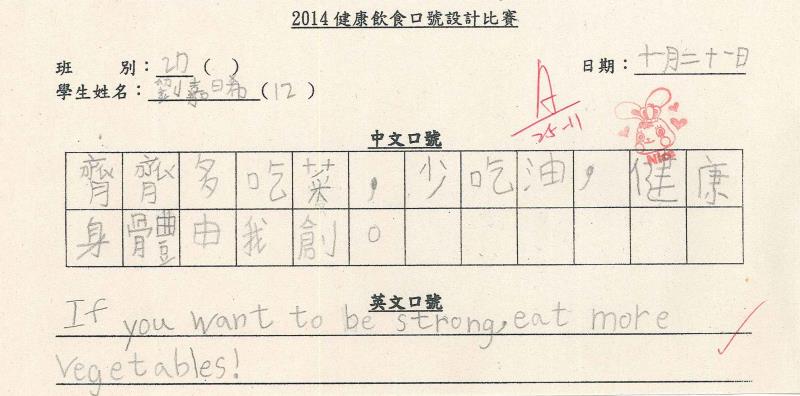 2014 健康飲食口號設計比賽
班 別：2D ( ) 日期：十月二十一日
學生姓名：劉嘉晞 (12)
A
25-11
Nice
中文口號
齊齊多吃菜，少吃油，健康
身體由我創。
英文口號
If you want to be strong, eat more
vegetables!